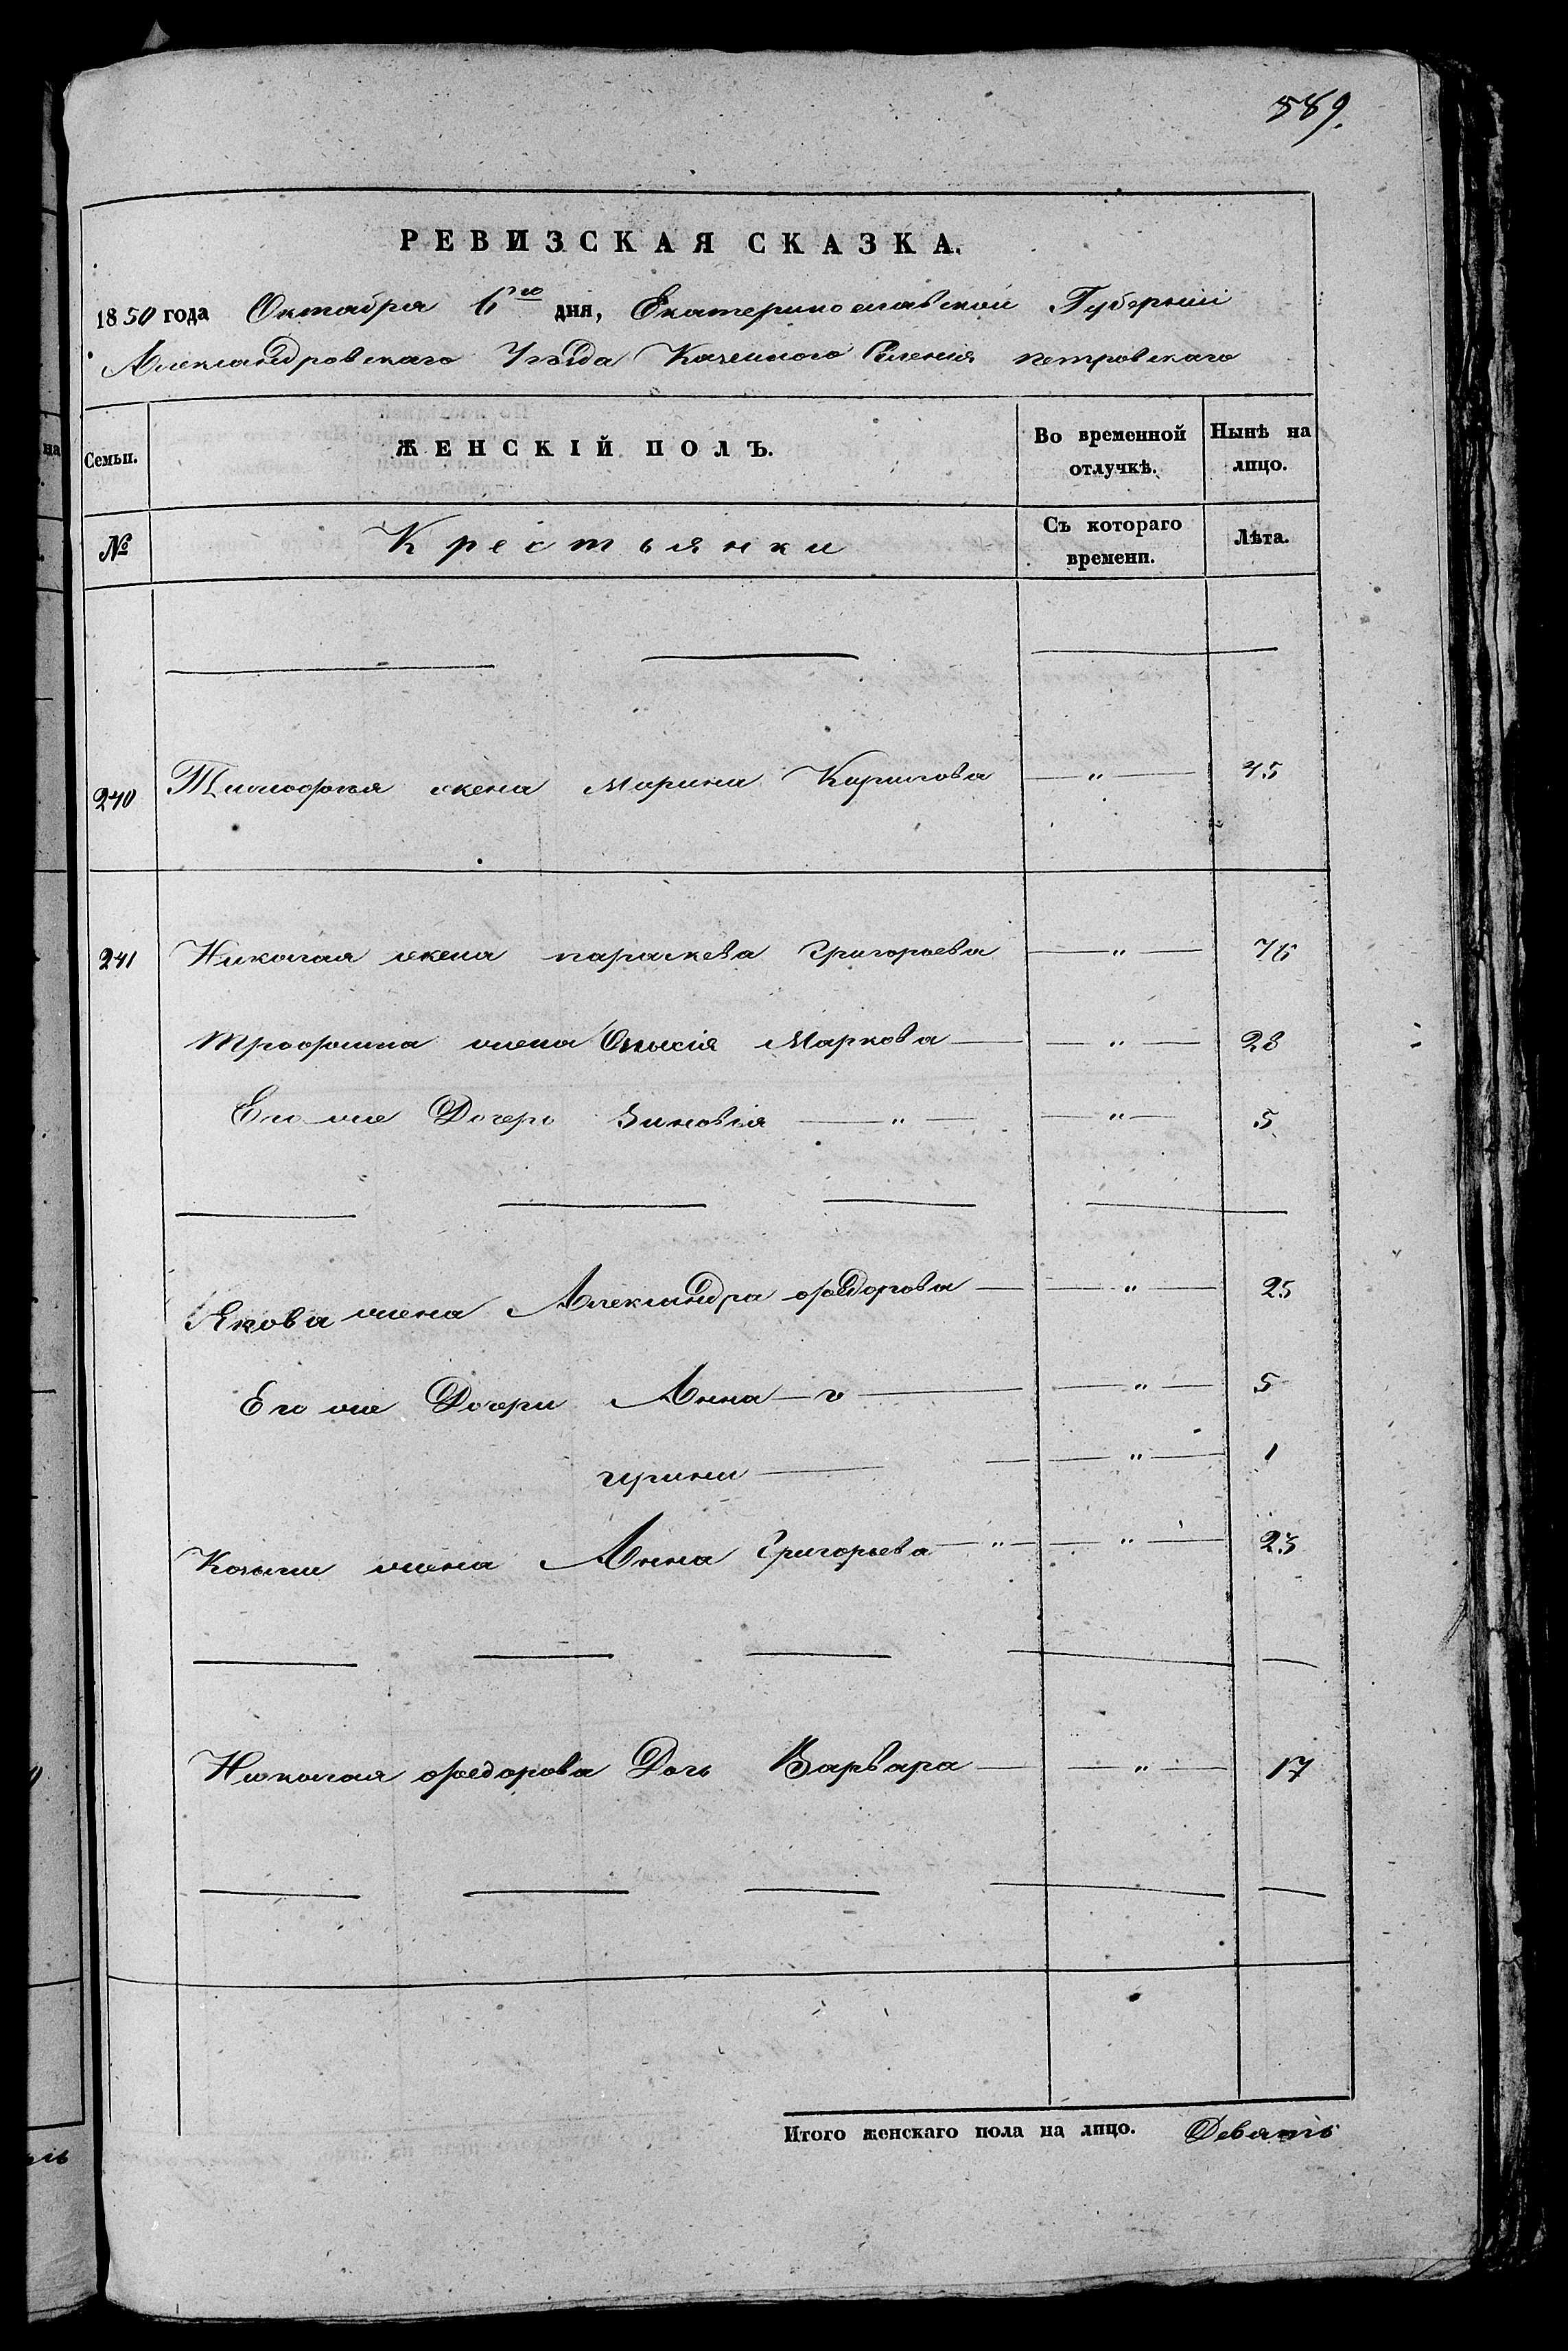 589.
РЕВИЗСКАЯ СКАЗКА.
1850 года Октября 6го дня, Екатеринославской Губернии
Александровскаго Уѣзда Казенного Селения петровскаго
Семьи. ЖЕНСКІЙ ПОЛЪ. Во временной отлучкѣ. Нынѣ на лицо.
№ Крестьянки Съ котораго времени. Лѣта.
240 Тимофея жена Марина Кирилова — " — 45
241 Николая жена параскева Григорьева — " — 76
Трофима жена Марковa — " — 28
Его же Дочерь Зиновия — " — — " — 5
Якова жена Александра Федорова — — " — 25
Его же Дочери Анна — — " — 5
ирина — — — " — 1
жена Анна Григорьева — " — — " — 23
Николая Федорова Дочь Варвара — — " — 17
Итого женскаго пола на лицо. Девять